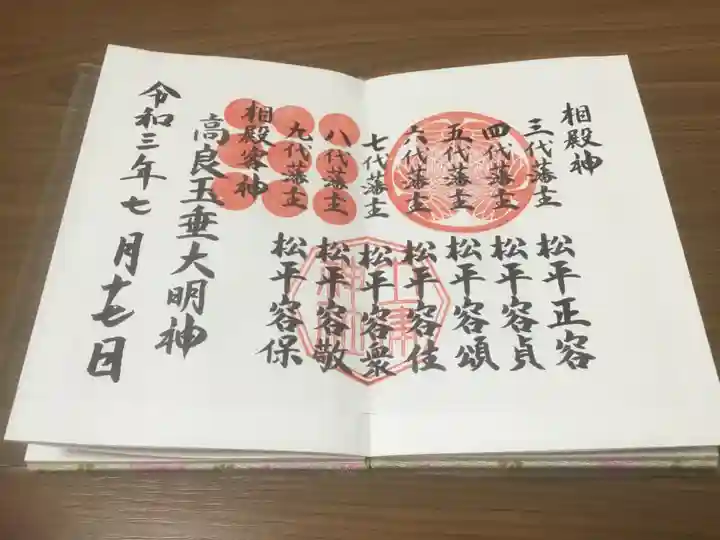 相殿神
三代藩主 松平正容
四代藩主 松平容貞
五代藩主 松平容頌
六代藩主 松平容住
七代藩主 松平容衆
八代藩主 松平容敬
九代藩主 松平容保
相殿客神
高良玉垂大明神
令和三年七月十七日